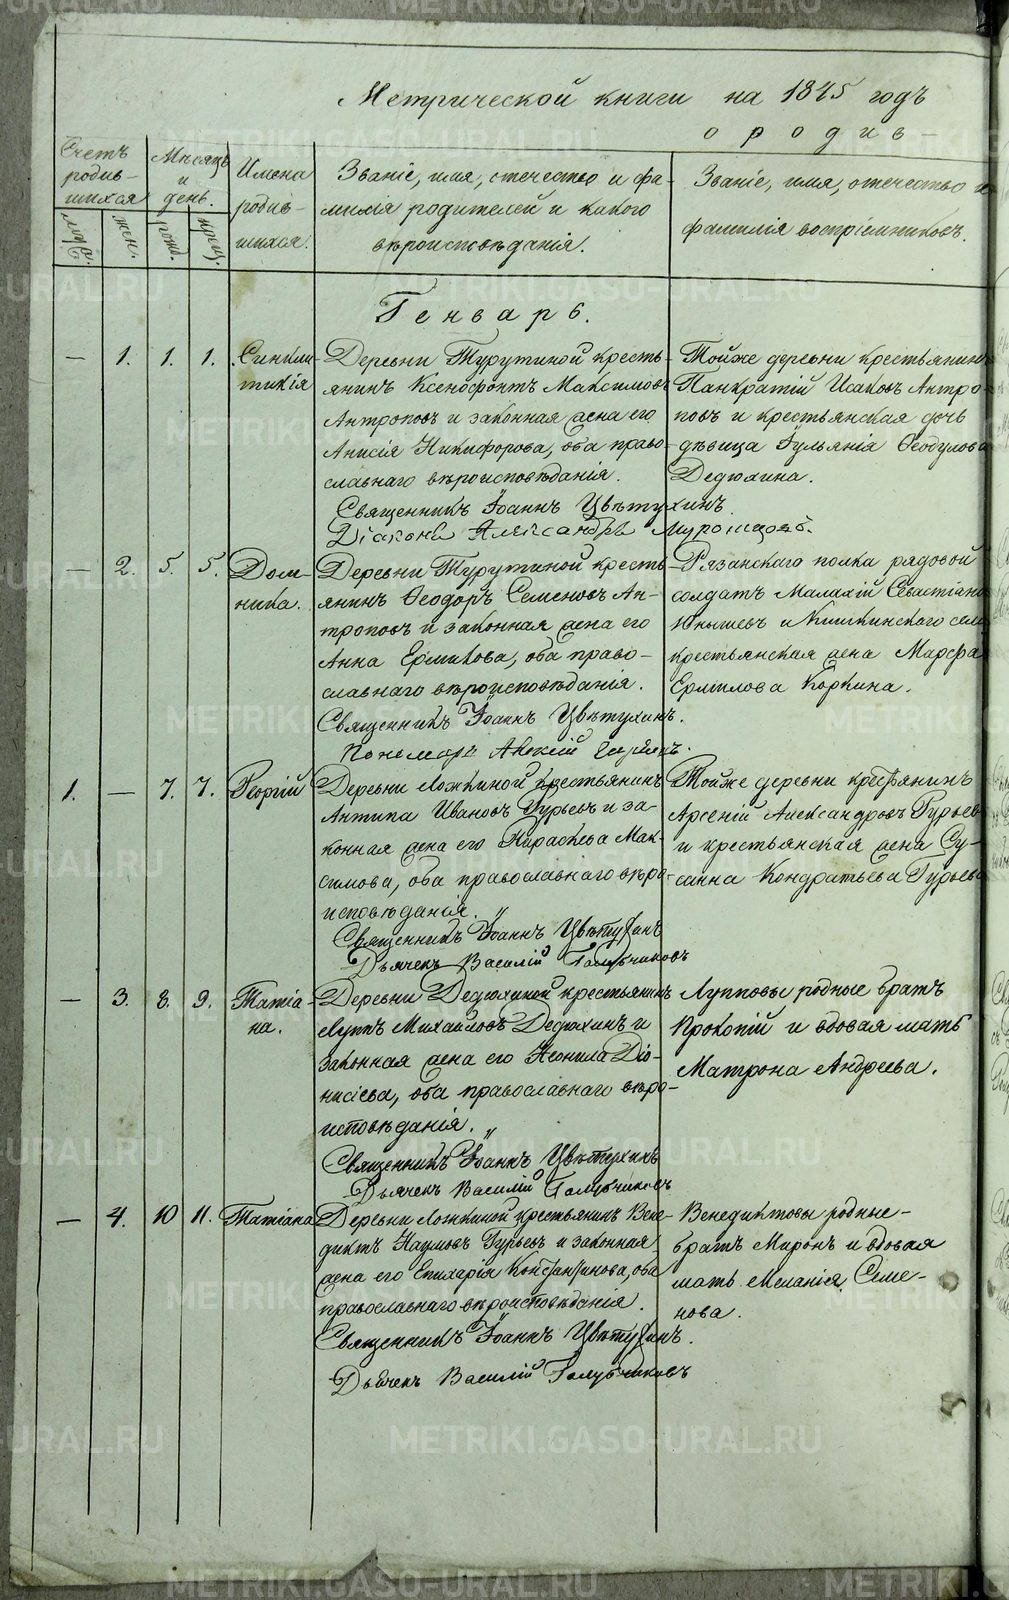 Метрической книги на 1845 годъ
о родив-
Счетъ родив-шихся
Мѣсяцъ и день.
Имена родив-шихся.
Званіе, имя, отечество и фа-
милія родителей и какого
вѣроисповѣданія.
Званіе, имя, отечество и
фамилія воспріемниковъ.
жен.
рожд.
крещ.
Генварь.
— 1. 1. 1. Синкли-
тикія
Деревни Турутиной кресть-
янинъ Ксенофонтъ Максимовъ
Антроповъ и законная жена его
Анисія Никифорова, оба право-
славнаго вѣроисповѣданія.
Священникъ Іоаннъ Цвѣтухинъ
Діаконъ Александръ
Тойже деревни крестьянинъ
Панкратій Исаковъ Антро-
повъ и крестьянская дочь
дѣвица Іульянія Ѳеодулова
Дедюхина.
— 2. 5. 5. Дом-
ника.
Деревни Турутиной кресть-
янинъ Ѳеодоръ Семеновъ Ан-
троповъ и законная жена его
Анна Ермикова, оба право-
славнаго вѣроисповѣданія.
Священникъ Іоаннъ Цвѣтухинъ.
Пономарь
Рязанскаго полка рядовой
солдатъ Малахій Севастіано
Юнышевъ и села
крестьянская жена Марѳа
Ермилова Коркина.
1. — 7. 7. Георгій
Деревни Ложкиной крестьянинъ
Антипа Ивановъ Гурьевъ и за-
конная жена его Параскева Мак-
симова, оба православнаго вѣро-
исповѣданія.
Священникъ Іоаннъ Цвѣтухинъ
Дьячекъ Василій Голубчиковъ
Тойже деревни крестьянинъ
Арсеній Александровъ Гурьевъ
и крестьянская жена Су-
санна Кондратьева Гурьева
— 3. 8. 9. Татіа-
на.
Деревни Дедюхиной крестьянинъ
Луппъ Михайловъ Дедюхинъ и
законная жена его Неонила Діо-
нисіева, оба православнаго вѣро-
исповѣданія.
Священникъ Іоаннъ Цвѣтухинъ
Дьячекъ Василій Голубчиковъ
Лупповы родные братъ
Прокопій и вдовая мать
Матрона Андреева.
— 4. 10 11. Татіана
Деревни Ложкиной крестьянинъ Вене-
диктъ Наумовъ Гурьевъ и законная
жена его Епихарія Константинова, оба
православнаго вѣроисповѣданія.
Священникъ Іоаннъ Цвѣтухинъ.
Дьячекъ Василій Голубчиковъ
Венедиктовы родные-
братъ Миронъ и вдовая
мать Меланія Семе-
нова.
METRIKI.GASO-URAL.RU